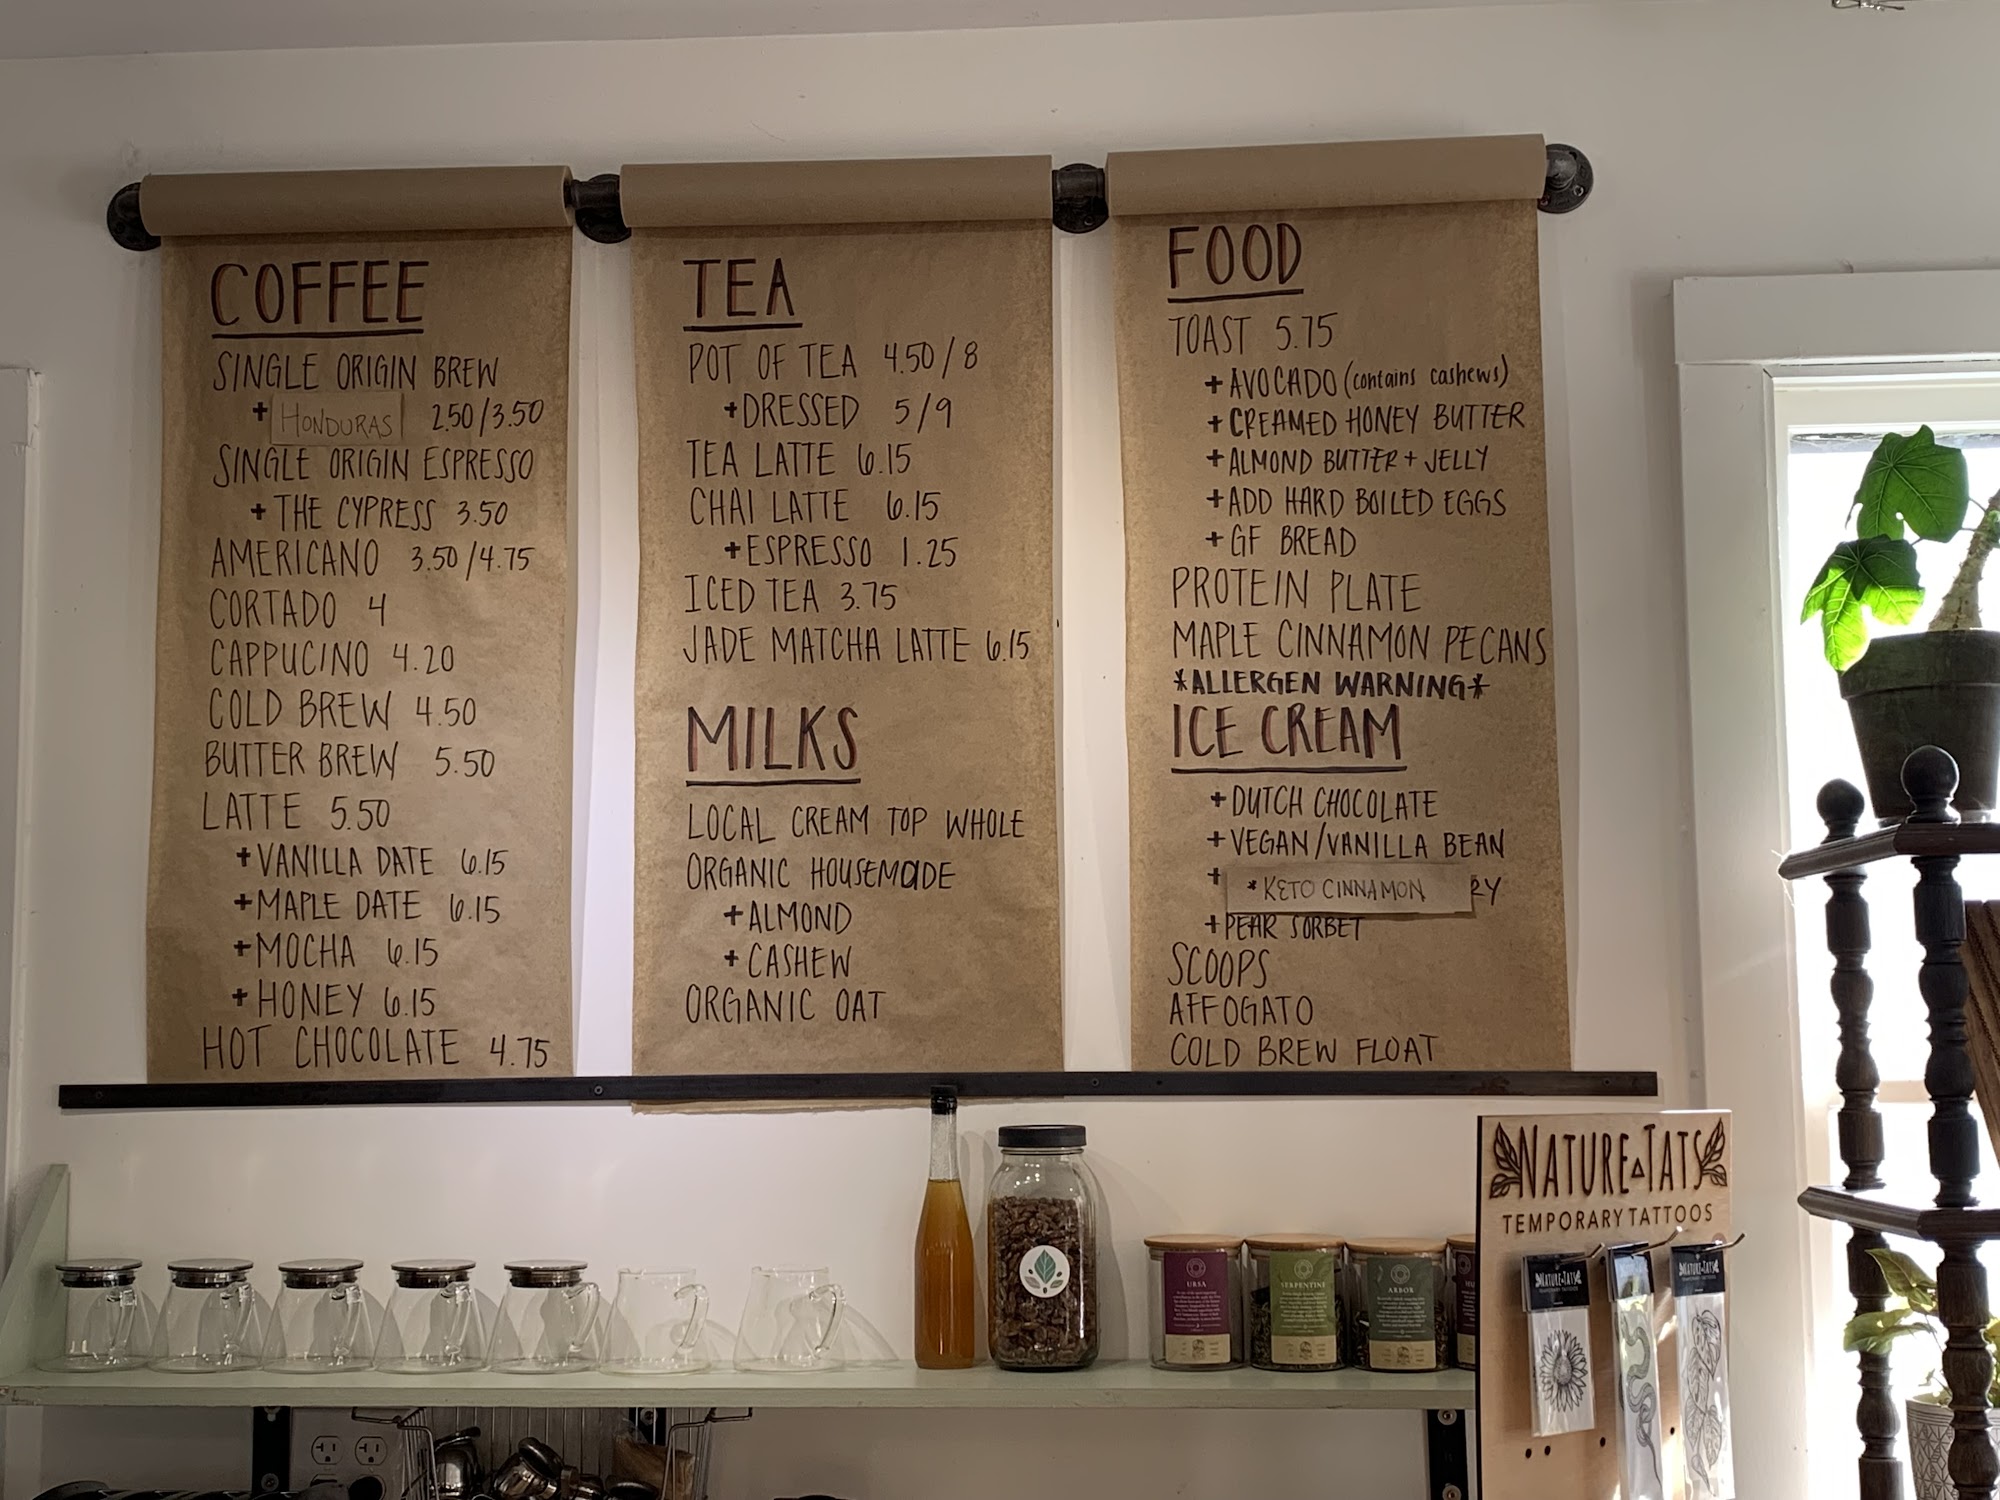 COFFEE
SINGLE ORIGIN BREW
+ HONDURAS 2.50/3.50
SINGLE ORIGIN ESPRESSO
+ THE CYPRESS 3.50
AMERICANO 3.50/4.75
CORTADO 4
CAPPUCINO 4.20
COLD BREW 4.50
BUTTER BREW 5.50
LATTE 5.50
+VANILLA DATE 6.15
+MAPLE DATE 6.15
+MOCHA 6.15
+HONEY 6.15
HOT CHOCOLATE 4.75
TEA
POT OF TEA 4.50/8
+DRESSED 5/9
TEA LATTE 6.15
CHAI LATTE 6.15
+ESPRESSO 1.25
ICED TEA 3.75
JADE MATCHA LATTE 6.15
MILKS
LOCAL CREAM TOP WHOLE
ORGANIC HOUSEMADE
+ALMOND
+CASHEW
ORGANIC OAT
FOOD
TOAST 5.75
+AVOCADO (contains cashews)
+CREAMED HONEY BUTTER
+ALMOND BUTTER + JELLY
+ADD HARD BOILED EGGS
+GF BREAD
PROTEIN PLATE
MAPLE CINNAMON PECANS
*ALLERGEN WARNING*
ICE CREAM
+DUTCH CHOCOLATE
+VEGAN/VANILLA BEAN
+ *KETO CINNAMON RY
+PEAR SORBET
SCOOPS
AFFOGATO
COLD BREW FLOAT
NATURE TATS
TEMPORARY TATTOOS
URSA
SERPENTINE
ARBOR
NATURE TATS
NATURE TATS